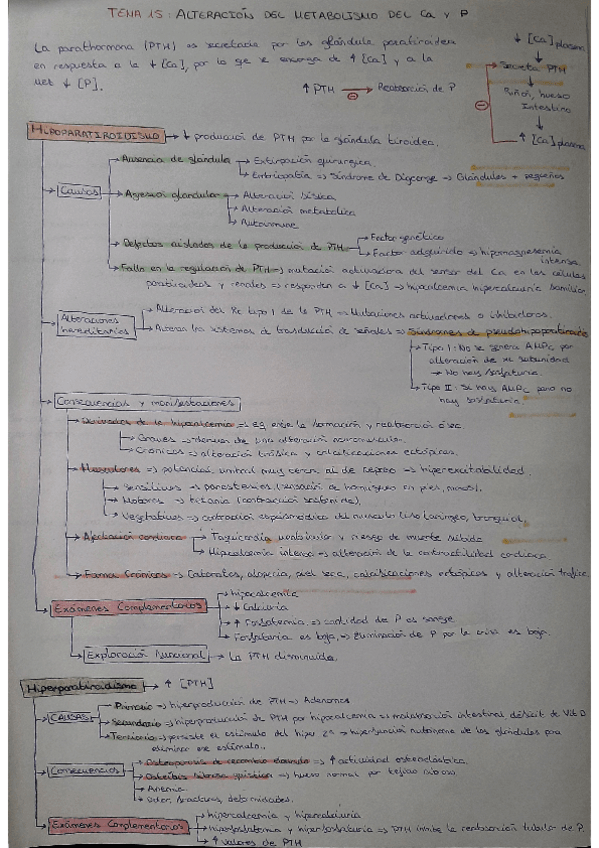 TEMA 15: ALTERACIÓN DEL METABOLISMO DEL Ca Y P
La parathormona (PTH) es secretada por las glándula paratiroidea
en respuesta a la ↓ [Ca], por lo que se encarga de ↑ [Ca] y a la
vez ↓ [P].
↑ PTH → Reabsorción de P
↓ [Ca] plasma
Secreta PTH
Riñón, hueso
Intestino
↑ [Ca] plasma
HIPOPARATIROIDISMO → ↓ producción de PTH por la glándula tiroidea.
Causas
Ausencia de glándula → Extirpación quirúrgica.
Síndrome de Digeorge → Glándulas + pequeños
Agresión glandular → Alteración física
Alteración metabólica
Autoinmune
Defectos aislados de la producción de PTH → Factor genético
Factor adquirido → hipomagnesemia
intensa.
Fallo en la regulación de PTH → mutación activadora del sensor del Ca en las células
paratiroideas y renales → responden a ↓ [Ca] → hipocalcemia hipercalciúrica familiar.
Alteraciones
hereditarias
Alteración del Rc tipo 1 de la PTH → Mutaciones activadoras o inhibidoras.
Altera los sistemas de transducción de señales → Síndromes de pseudohipoparatiroidismo
Tipo I: No se genera AMPc por
alteración de su subunidad
→ No hay fosfaturia.
Tipo II: Si hay AMPc pero no
hay fosfaturia
Consecuencias y manifestaciones
Derivadas de la hipocalcemia → Ca exige la formación y reabsorción ósea.
Graves → derivan de una alteración neuromuscular.
Crónicos → alteración trófica y calcificaciones ectópicas.
Musculares → potencial umbral muy cerca al de reposo → hiperexcitabilidad.
Sensitivos → parestesias (sensación de hormigueo en pies, manos).
Motores → tetania (contracción sostenida).
Vegetativos → contracción espasmódica del músculo liso laríngeo, bronquial.
Afectación cardiaca → Taquicardia ventricular y riesgo de muerte súbita
Hipocalcemia intensa → alteración de la contractilidad cardiaca
Forma Crónicas → Cataratas, alopecia, piel seca, calcificaciones ectópicas y alteración trófica.
Exámenes Complementarios
hipocalcemia
↓ Calciuria
↑ Fosfatemia → cantidad de P es sangre
Fosfaturia es baja → Eliminación de P por la orina es baja.
Exploración Funcional → La PTH disminuida.
Hiperparatiroidismo → ↑ [PTH]
CAUSAS
Primario → hiperproducción de PTH → Adenomas
Secundario → hiperproducción de PTH por hipocalcemia → malabsorción intestinal, déficit de Vit D
Terciario → persiste el estímulo del hiper 2º → hiperfunción autónoma de las glándulas para
eliminar ese estímulo.
Consecuencias
Osteoporosis de recambio elevado → ↑ actividad osteoclástica.
Osteítis fibrosa quística → hueso normal por tejido fibroso
Anemia
Dolor, fracturas, deformidades.
Exámenes Complementarios
hipercalcemia y hipercalciuria
hipofosfatemia y hiperfosfaturia → PTH inhibe la reabsorción tubular de P.
↑ valores de PTH